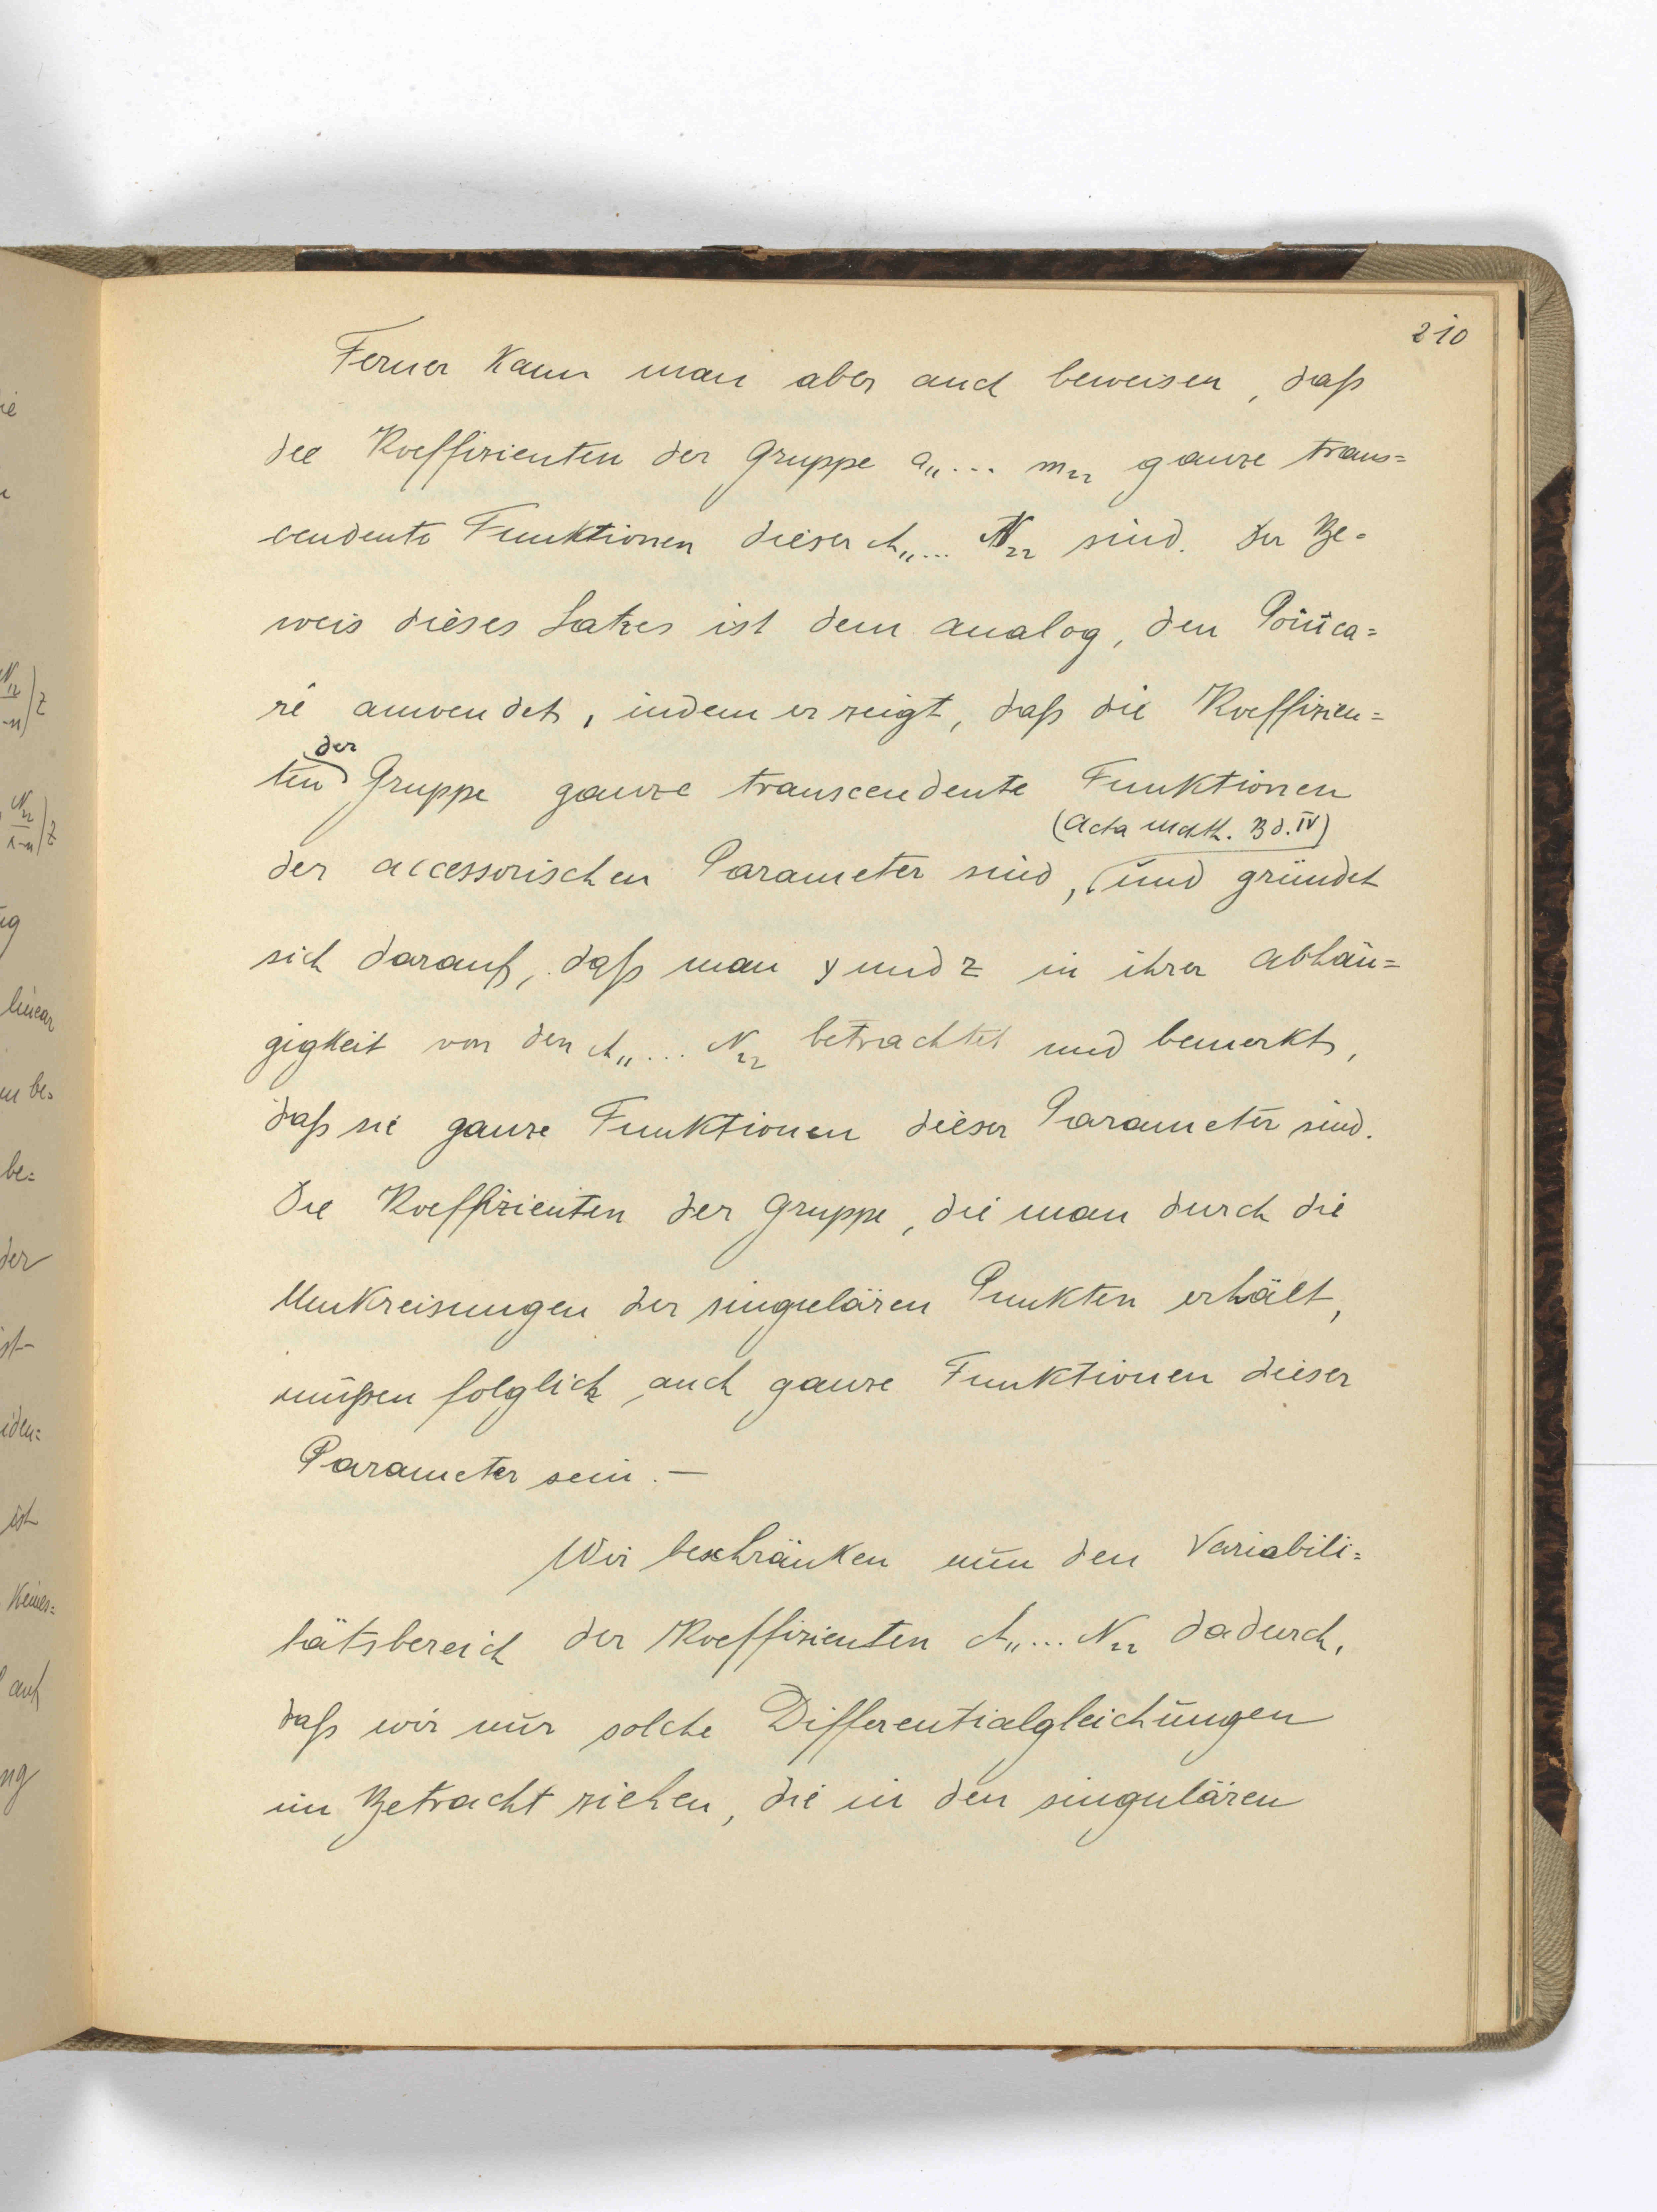 210
Ferner kann man aber auch beweisen, daß
die Koeffizienten der Gruppe a₁₁... m₂₂ ganze trans=
cendente Funktionen dieser A₁₁... N₂₂ sind. Der Be=
weis dieses Satzes ist dem analog, den Poinca=
ré anwendet, indem er zeigt, daß die Koeffizien=
der
ten Gruppe ganze transcendente Funktionen
(Acta math. Bd. IV)
der accessorischen Parameter sind, und gründet
sich darauf, daß man y und z in ihrer Abhän=
gigkeit von den A₁₁... N₂₂ betrachtet und bemerkt,
daß sie ganze Funktionen dieser Parameter sind.
Die Koeffizienten der Gruppe, die man durch die
Umkreisungen der singulären Punkten erhält,
müßen folglich auch ganze Funktionen dieser
Parameter sein. —
Wir beschränken nun den Variabili=
tätsbereich der Koeffizienten A₁₁... N₂₂ dadurch,
daß wir nur solche Differentialgleichungen
in Betracht ziehen, die in den singulären
ie
N₁₂
-n
z
N₂₂
1-n
z
ng
linear
m be=
be=
der
ist
iden=
ist
keines=
auf
ng